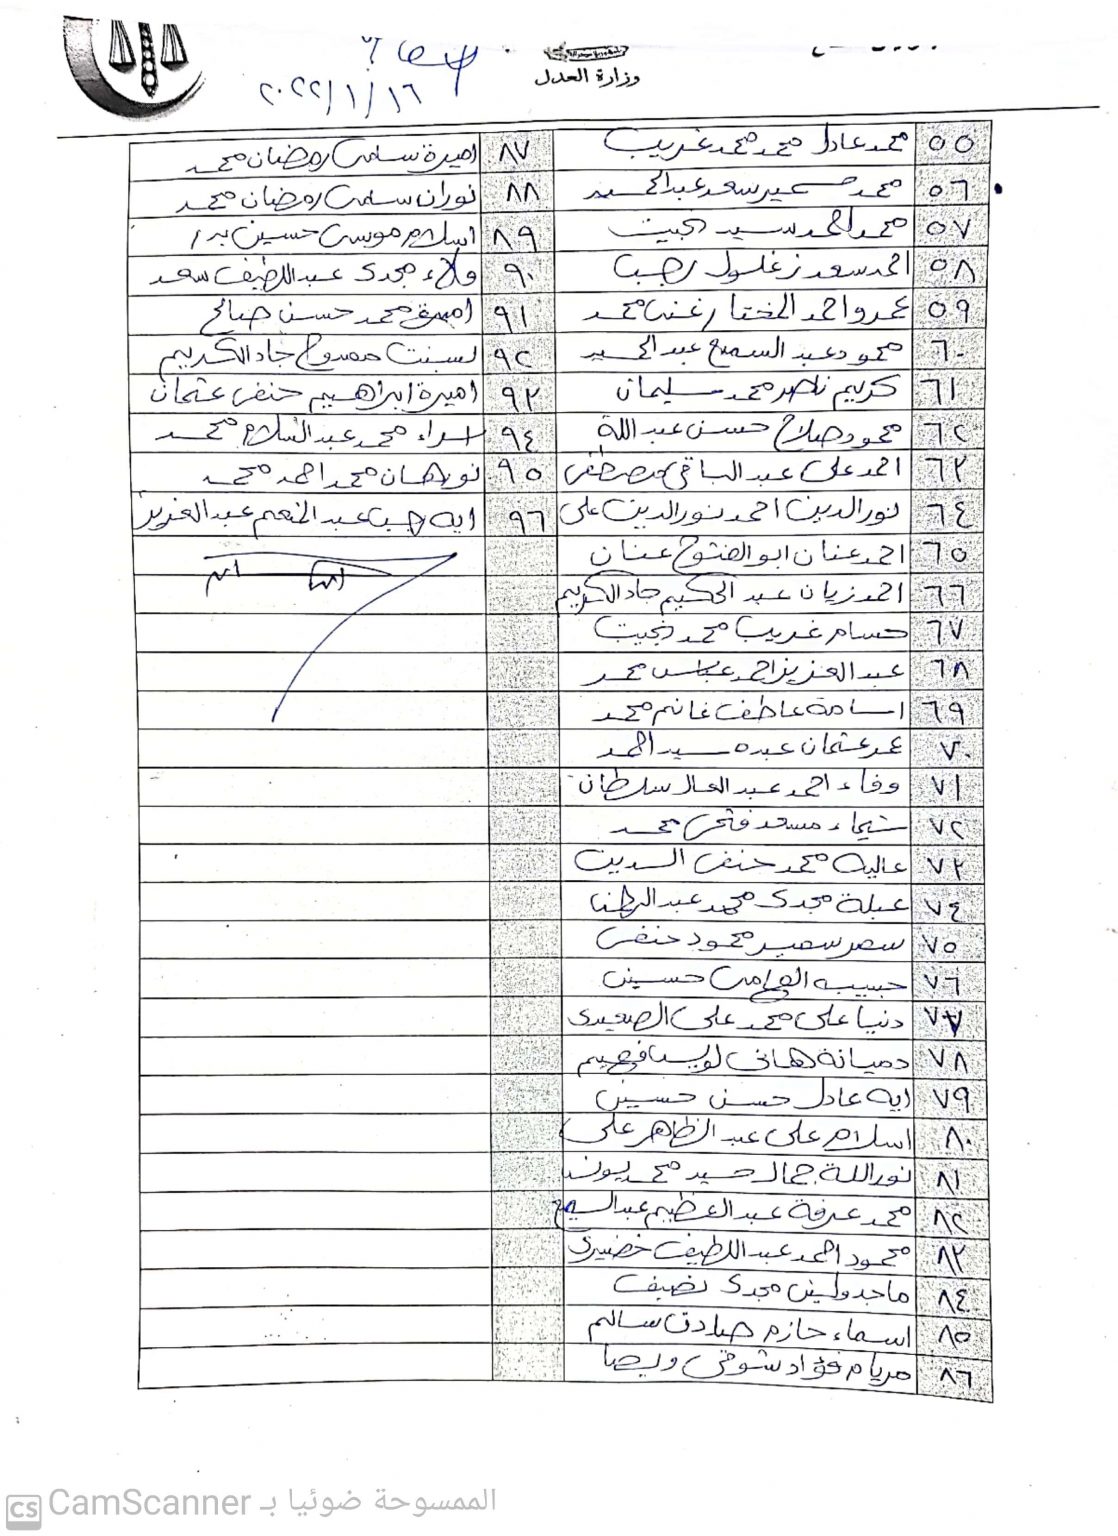 وزارة العدل
٢٠٢٢/١/١٦
٥٥ محمد عادل محمد محمد غريب
٥٦ محمد سعد عبدالحميد
٥٧ محمد احمد سيد بخيت
٥٨ احمد سعد زغلول رجب
٥٩ عمرو احمد المختار محمد
٦٠ محمود عبد السميع عبد الحميد
٦١ كريم ناصر محمد سليمان
٦٢ محمود صلاح حسن عبد اللة
٦٣ احمد على عبد الباقى مصطفى
٦٤ نور الدين احمد نور الدين على
٦٥ احمد عنان ابو الفتوح عنان
٦٦ احمد زيان عبد الحكيم جاد الكريم
٦٧ حسام غريب محمد بخيت
٦٨ عبد العزيز احمد عباس محمد
٦٩ اسامة عاطف غانم محمد
٧٠ عمر عثمان عبده سيد احمد
٧١ وفاء احمد عبد العال سلطان
٧٢ شيماء مسعد فتحى محمد
٧٣ عاليه محمد حنفى الدين
٧٤ عبلة مجدى محمد
٧٥ سمر سمير محمود حنفى
٧٦ حبيبه حسين
٧٧ دنيا على محمد على الصعيدى
٧٨ دميانة هانى لويس فهيم
٧٩ ايه عادل حسن حسين
٨٠ اسلام على عبد الظاهر على
٨١ نور اللة جمال سيد محمد يونس
٨٢ محمد عرفة عبد العظيم عبد السميع
٨٣ محمود احمد عبد اللطيف خضيرى
٨٤ ماجدولين مجدى نصيف
٨٥ اسماء حازم صادق سالم
٨٦ مريام فؤاد شوقى ويصا
٨٧ اميرة سامى رمضان محمد
٨٨ نوران سامى رمضان محمد
٨٩ اسلام موسى حسين بدر
٩٠ ولاء مجدى عبد اللطيف سعد
٩١ اميرة محمد حسن صالح
٩٢ بسنت ممدوح جاد الكريم
٩٣ اميرة ابراهيم حنفى عثمان
٩٤ اسراء محمد عبد السلام محمد
٩٥ نورهان محمد احمد محمد
٩٦ ايه رجب عبد المنعم عبد العزيز
CS CamScanner الممسوحة ضوئيا بـ